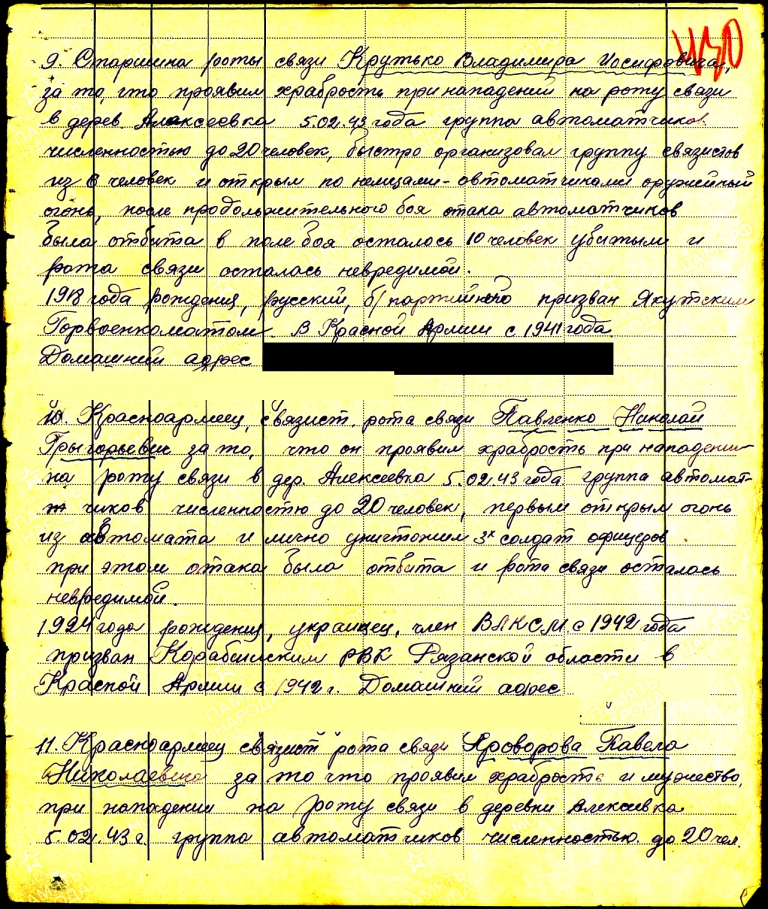 430
9. Старшина роты связи Крутько Владимира Иосифовича,
за то, что проявил храбрость при нападений на роту связи
в дерев. Алексеевка 5.02.43 года группа автоматчиков.
численностью до 20 человек, быстро организовал группу связистов
из 6 человек и открыл по немцами-автоматчиками оружейный
огонь, после продольжительного боя атака автоматчиков
была отбита в поле боя осталось 10 человек убитыми и
рота связи осталась невредимой.
1918 года рождения, русский, б/партийного призван Якутским
Горвоенкоматом. В Красной Армии с 1941 года
Домашний адрес
10. Красноармеец, связист, рота связи Павленко Николай
Грыгорьевич за то, что он проявил храбрость при нападении
на роту связи в дер. Алексеевка 5.02.43 года группа автомат-
чиков численностью до 20 человек, первым открыл огонь
из автомата и лично уничтожил 3х солдат офицеров
при этом атака была отбита и рота связи осталась
невредимой.
1924 года рождения, украинец, член ВЛКСМ с 1942 года
призван Кораблинским РВК Рязанской области в
Красной Армии с 1942 г. Домашний адрес
11. Красноармеец связист рота связи Яроворова Павела
Николаевича за то что проявил храбрость и мужество,
при нападении на роту связи в деревни Алексивка
5.02.43 г. группа автоматчиков численностью до 20 чел.